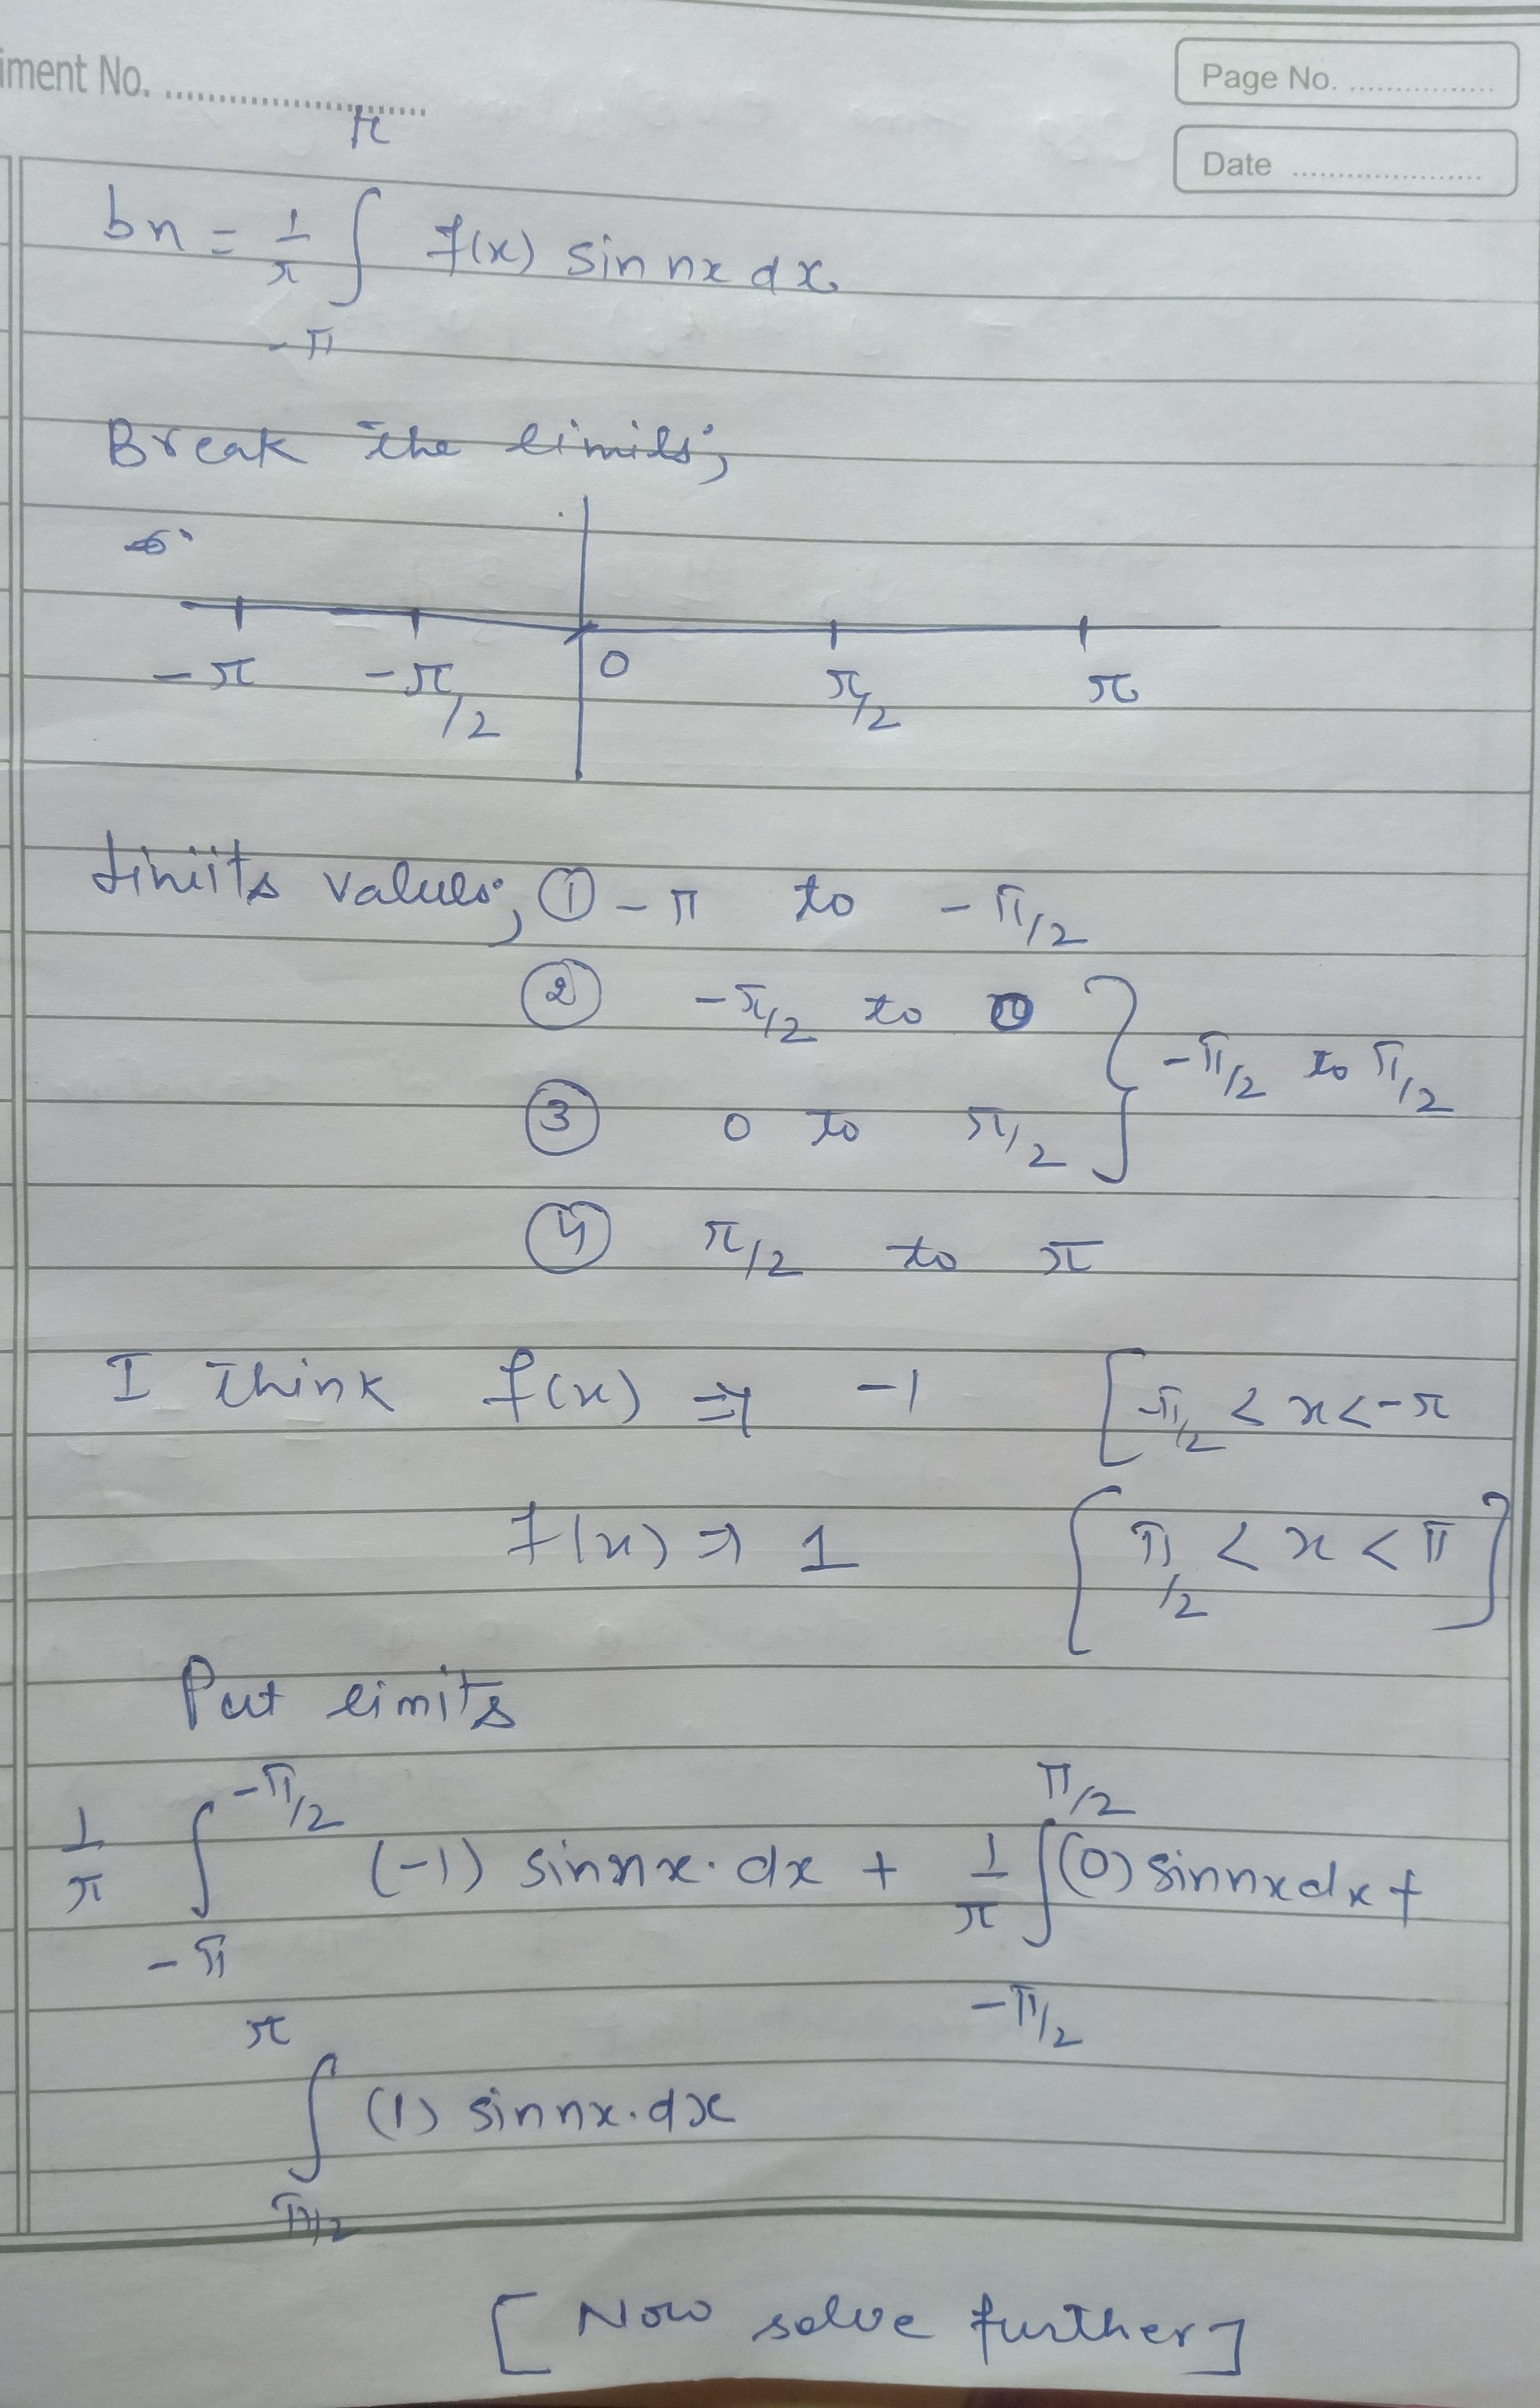 iment No. ........................
Page No. ................
Date .....................
bn = 1/π ∫_{-π}^{π} f(x) sin nx dx
Break the limits;
-π -π/2 0 π/2 π
Limits values; ① -π to -π/2
② -π/2 to 0
③ 0 to π/2 } -π/2 to π/2
④ π/2 to π
I think f(x) ⇒ -1 [-π/2 < x < -π
f(x) ⇒ 1 [π/2 < x < π]
Put limits
1/π ∫_{-π}^{-π/2} (-1) sin nx. dx + 1/π ∫_{-π/2}^{π/2} (0) sin nx dx +
∫_{π/2}^{π} (1) sin nx. dx
[ Now solve further ]